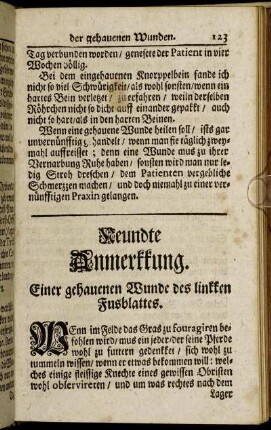 der gehauenen Wunden. 123
Tag verbunden worden / genesete der Patient in vier
Wochen völlig.
Bei dem eingehauenen Knorppelbein fande ich
nicht so viel Schwürigkeit / als wohl sonsten / wenn ein
hartes Bein verletzet / zu erfahren / weiln derselben
Röhrchen nicht so dicht auff einander gepakkt / auch
nicht so hart / als in den harten Beinen.
Wenn eine gehauene Wunde heilen soll / ists gar
unvernünfftig gehandelt / wann man sie täglich zwey-
mahl auffreisset; denn eine Wunde mus zu ihrer
Vernarbung Ruhe haben / sonsten wird man nur le-
dig Stroh dreschen / dem Patienten vergebliche
Schmertzen machen / und doch niemahl zu einer ver-
nünfftigen Praxin gelangen.
Neundte
Anmerkkung.
Einer gehauenen Wunde des linkken
Fusblattes.
WEnn im Felde das Gras zu fouragiren be-
fohlen wird / mus ein jeder / der seine Pferde
wohl zu futtern gedenkket / sich wohl zu
tummeln wissen / wenn er etwas bekommen will: wel-
ches einige fleissige Knechte eines gewissen Obristen
wohl observireten / und um was rechtes nach dem
Lager